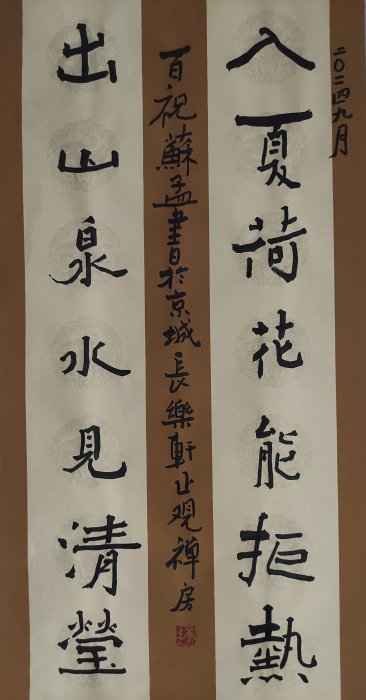 二〇二四九月
入夏荷花能拒熱
百祝蘇孟書於京城長樂軒止观禅房
出山泉水見清瑩